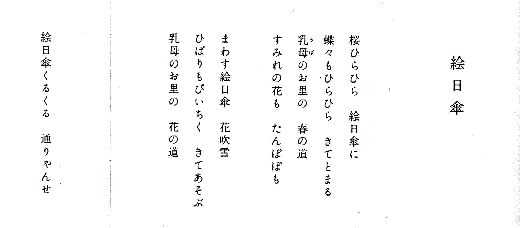 絵日傘
桜ひらひら 絵日傘に
蝶々もひらひら きてとまる
乳母のお里の 春の道
うば
すみれの花も たんぽぽも
まわす絵日傘 花吹雪
ひばりもぴいちく きてあそぶ
乳母のお里の 花の道
絵日傘くるくる 通りゃんせ